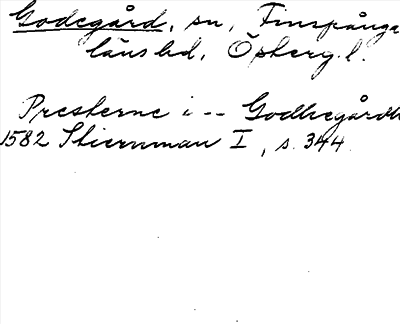 Godegård, sn, Finspånga
läns hd, Östberg. l.
Presterne i -- Godhegårdh
1582 Stiernman I, s. 344.